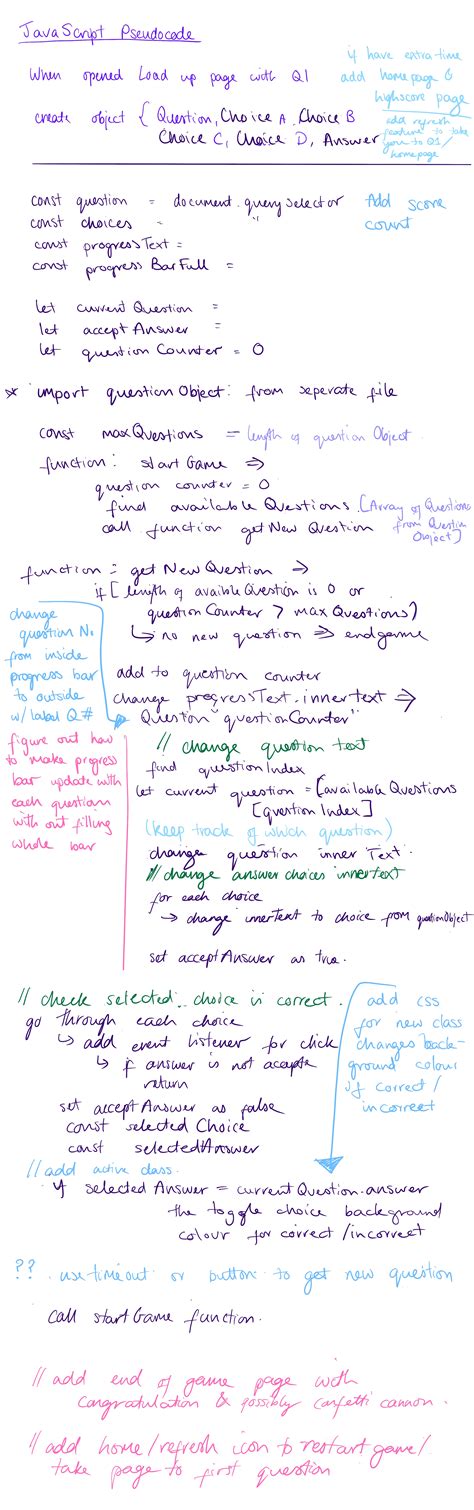 JavaScript Pseudocode
if have extra time
When opened Load up page with Q1
add homepage &
highscore page
create object { Question, Choice A, Choice B
Choice C, Choice D, Answer
add refresh
feature to take
you to Q1/
homepage
const question = document.querySelector
Add score
count
const choices = "
const progressText =
const progressBarFull =
let currentQuestion =
let acceptAnswer =
let questionCounter = 0
* import questionObject: from seperate file
const maxQuestions = length of question Object.
function: startGame =>
question counter = 0
find availableQuestions. [Array of Questions
from Question
Object]
call function getNewQuestion
function: getNewQuestion =>
if [length of availble Question is 0 or
questionCounter > maxQuestions)
↳ no new question => endgame
change
question No
from inside
progress bar
to outside
w/ label Q#
add to question counter
change progressText.innertext =>
Question "questionCounter"
figure out how
to make progress
bar update with
each question
with out filling
whole bar
// change question text
find questionIndex
let current question = [availableQuestions
[questionIndex]
(keep track of which question)
change question innerText.
// change answer choices innertext
for each choice
→ change innerText to choice from questionObject
set acceptAnswer as true.
// check selected choice is correct.
go through each choice
↳ add event listener for click
↳ if answer is not accepte
return
set acceptAnswer as false
const selected Choice
const selectedAnswer
add css
for new class
changes back-
ground colour
if correct/
incorrect
// add active class.
if selected Answer = currentQuestion.answer
the toggle choice background
colour for correct/incorrect
?? use timeout or button to get new question
call startGame function.
// add end of game page with
congratulation & possibly confetti cannon.
// add home/refresh icon to restart game/
take page to first question